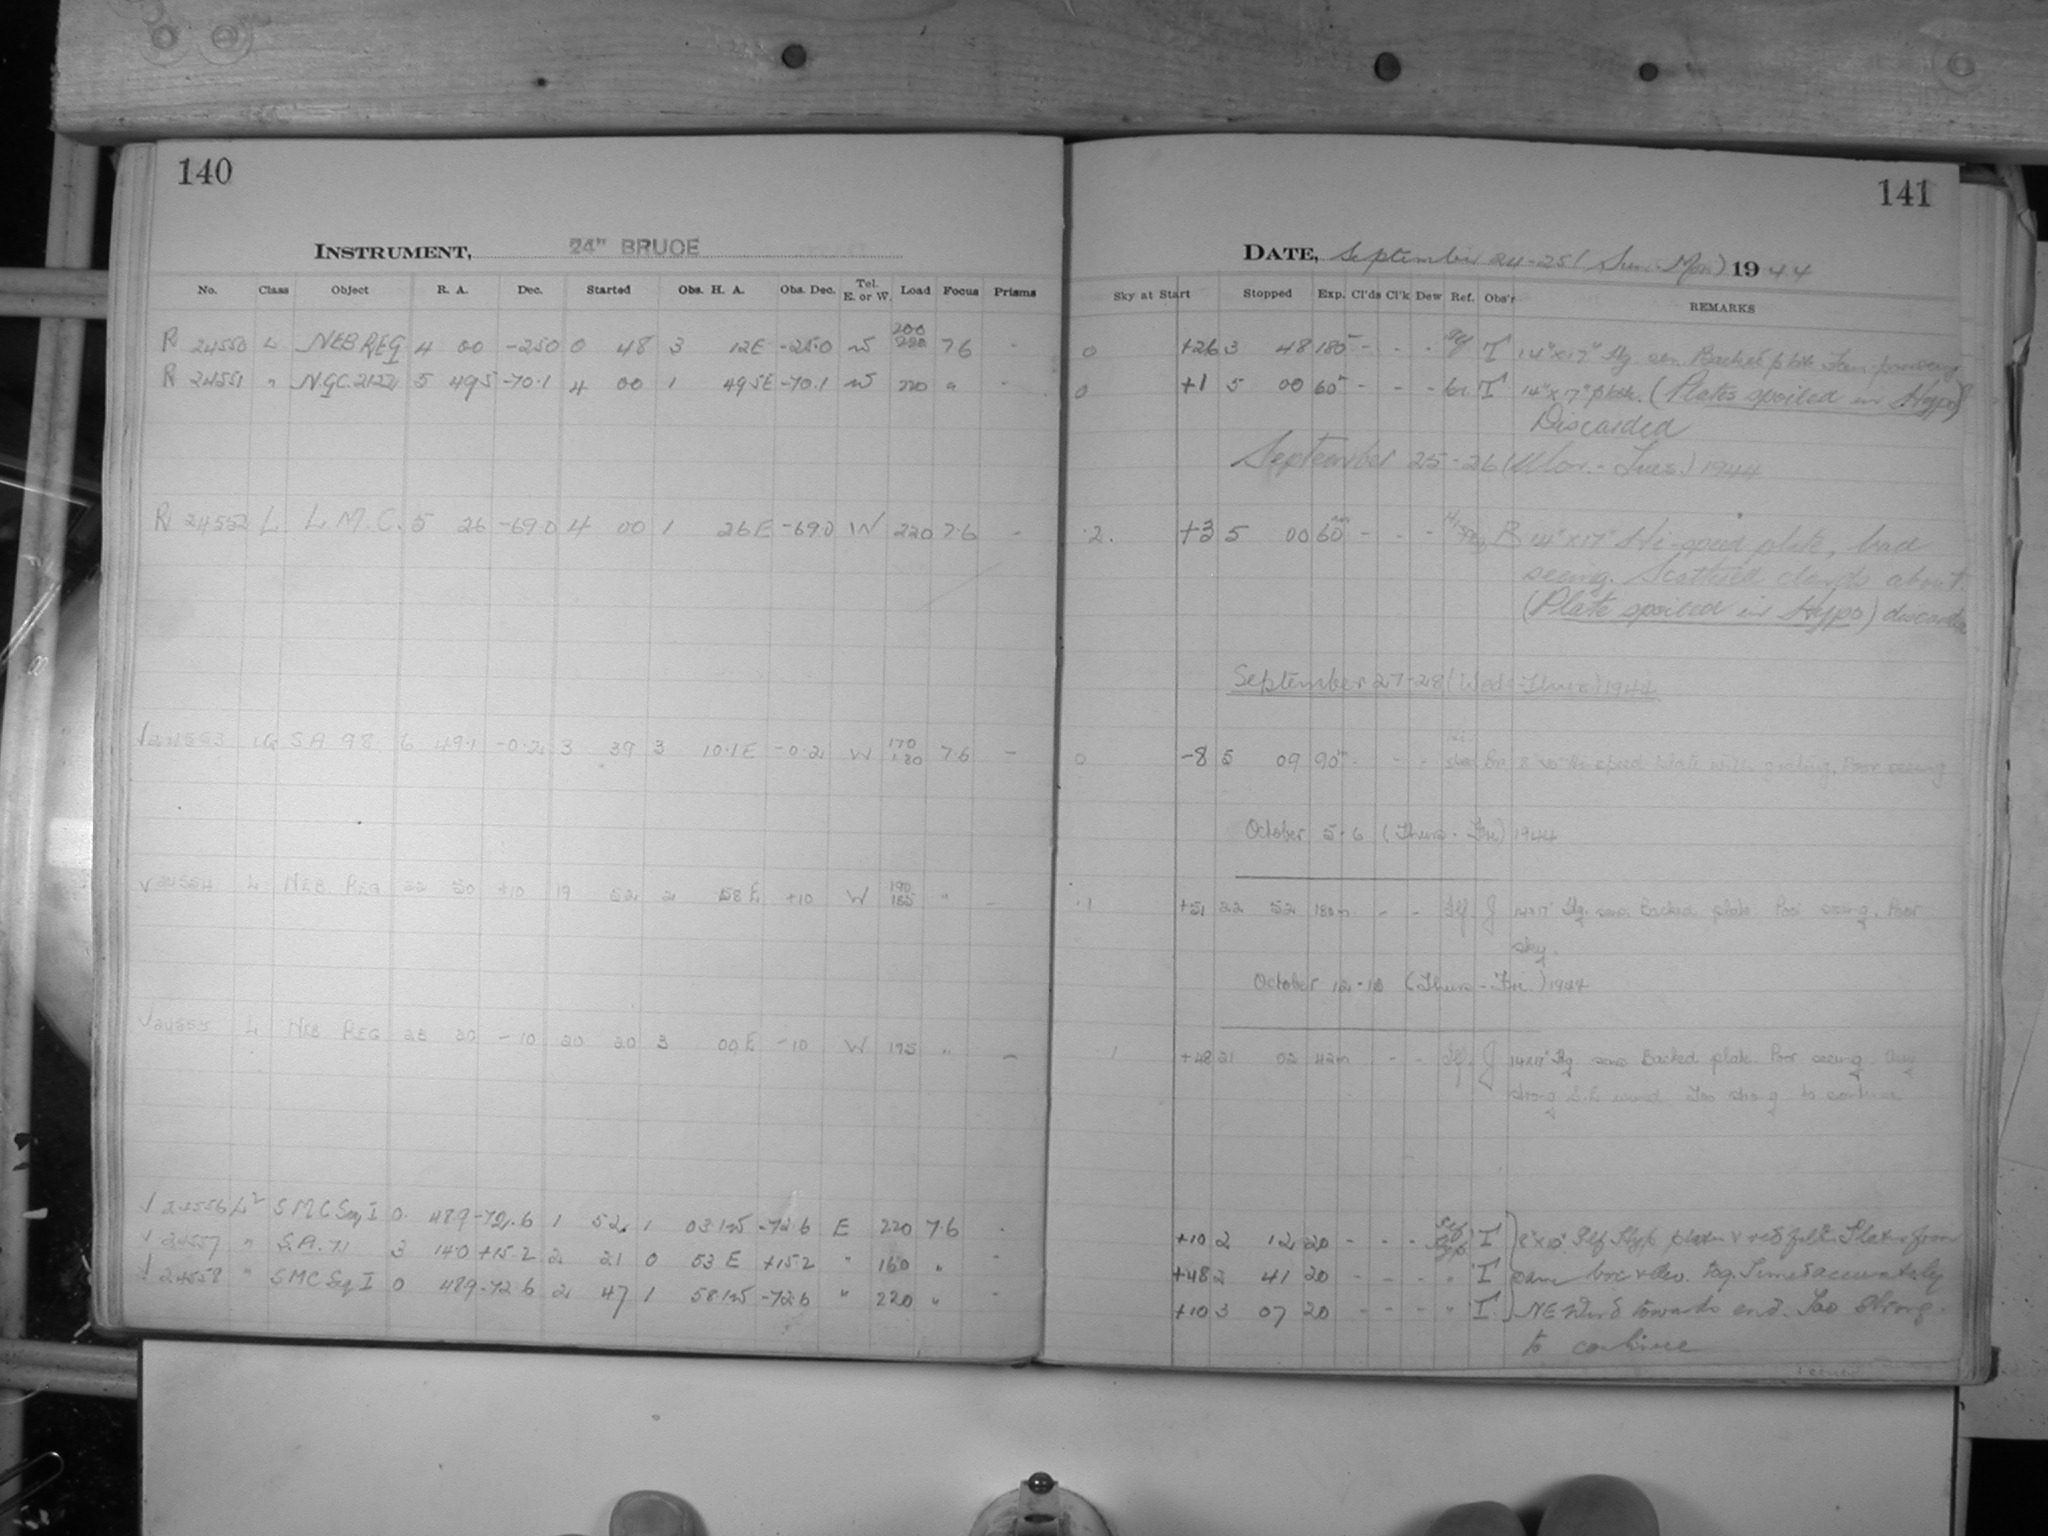 140
INSTRUMENT, 24" BRUCE
No. Class Object R. A. Dec. Started Obs. H. A. Obs. Dec. Tel. E. or W. Load Focus Prisms
R 24550 L NEB REG 4 00 -25.0 0 48 3 12E -25.0 W 200 220 7.6 -
R 24551 " NGC 2122 5 49.5 -70.1 4 00 1 49.5E -70.1 W 220 " -
R 24552 L L.M.C. 5 26 -69.0 4 00 1 26E -69.0 W 220 7.6 -
√24553 SA 98 6 49.1 -0.2 3 39 3 10.1E -0.2 W 170 180 7.6 -
√24554 L NEB REG 22 50 +10 19 52 2 58E +10 W 190 185 " -
√24555 L NEB REG 23 20 -10 20 20 3 00E -10 W 195 " -
√24556 L² SMC Seq I 0 48.9 -72.6 1 52 1 03.1W -72.6 E 220 7.6 -
√24557 " S.A. 71 3 14.0 +15.2 2 21 0 53E +15.2 " 160 " -
√24558 " SMC Seq I 0 48.9 -72.6 2 47 1 58.1W -72.6 " 220 " -
141
DATE, September 24-25 (Sun.-Mon) 1944
Sky at Start Stopped Exp. Cl'ds Cl'k Dew Ref. Obs'r REMARKS
0 +26 3 48 180 - - - T 14"x17" Backed plate
0 +1 5 00 60m - - - T 14"x17" plate. (Plates spoiled in Hypo)
Discarded
September 25-26 (Mon.-Tues.) 1944
.2. +3 5 00 60 - - - B 14"x17" Hi-speed plate, bad
seeing. Scattered clouds about.
(Plate spoiled in Hypo) discarded
September 27-28 (Wed-Thurs) 1944
0 -8 5 09 90m - - - Hi speed plate with grating. Poor seeing
October 5-6 (Thurs-Fri) 1944
.1 +51 22 52 180m - - J 14x17" Backed plate. Poor seeing. Poor
sky.
October 12-13 (Thurs-Fri.) 1944
.1 +48 21 02 42m - - J 14x17" Backed plate. Poor seeing. Very
strong wind. Too strong to continue
+10 2 12 20 - - - T 8"x10" plates & red filter. Plates from
+48 2 41 20 - - - " T same box & dev. tog. Timed accurately
+10 3 07 20 - - - " T NE Wind towards end. Too strong
to continue